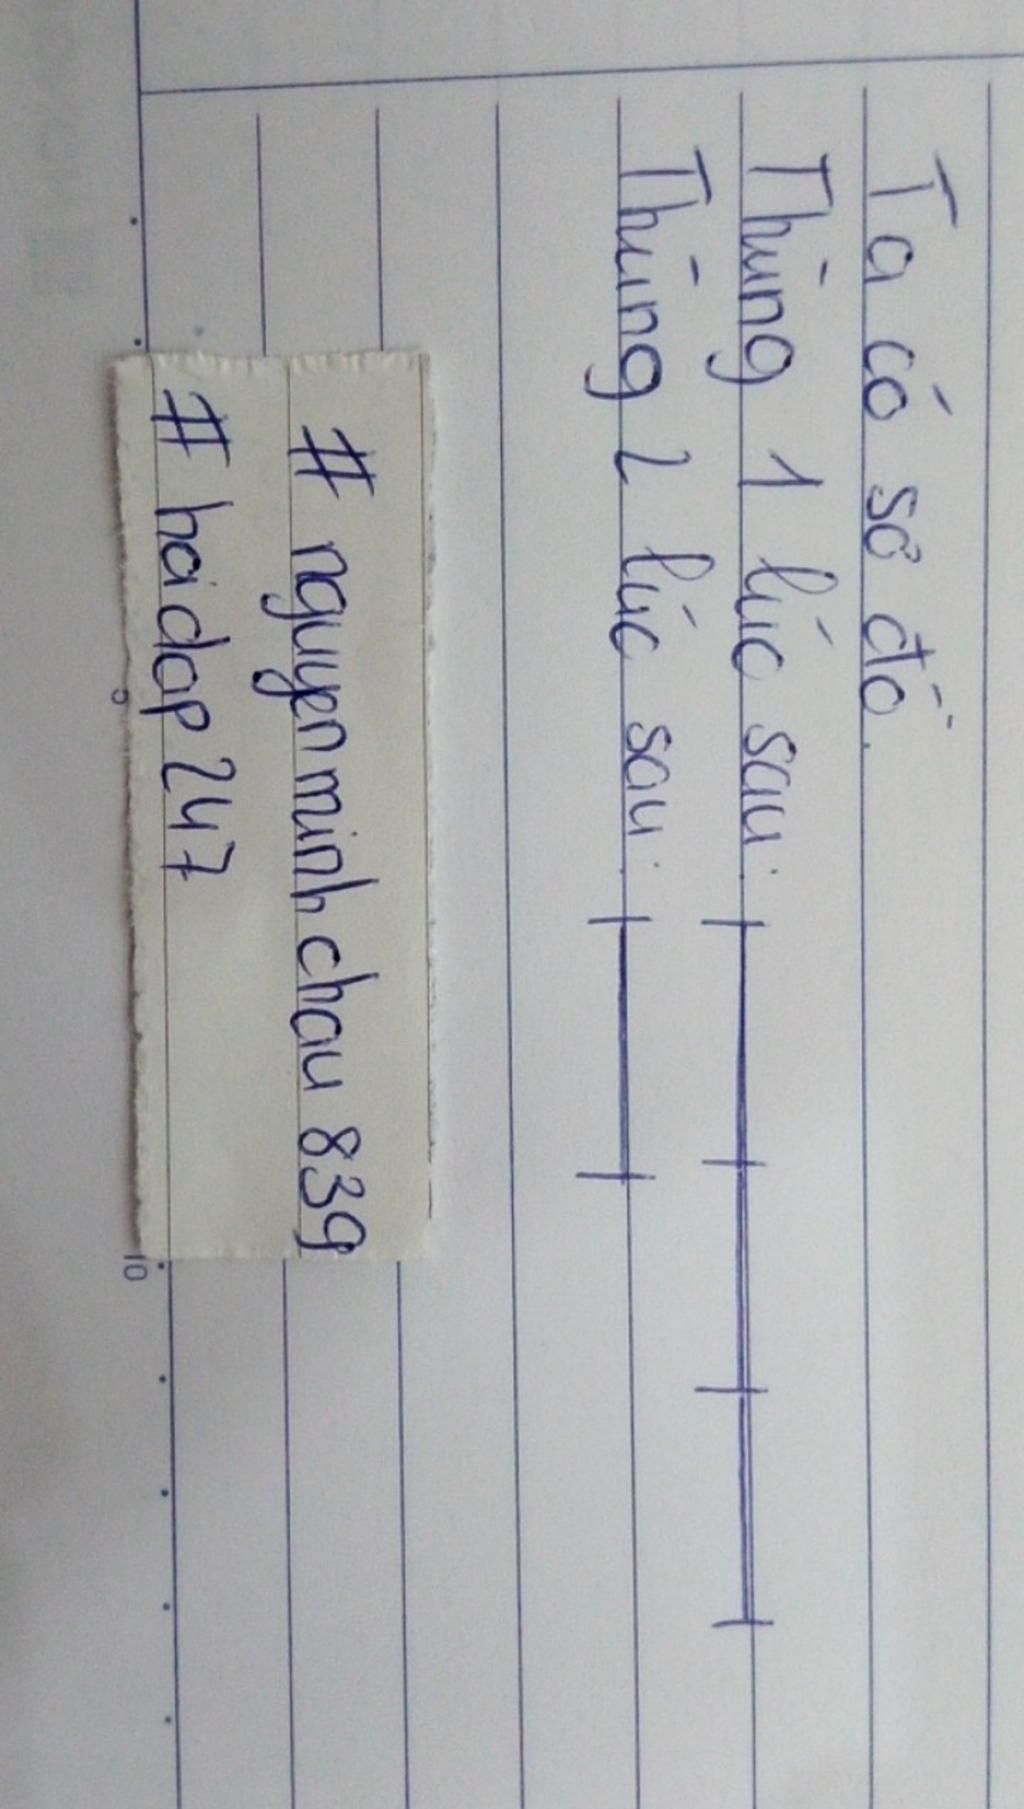 Ta có sơ đồ.
Thùng 1 lúc sau:
Thùng 2 lúc sau:
# nguyenminhchau839
# hoidap247
5
10